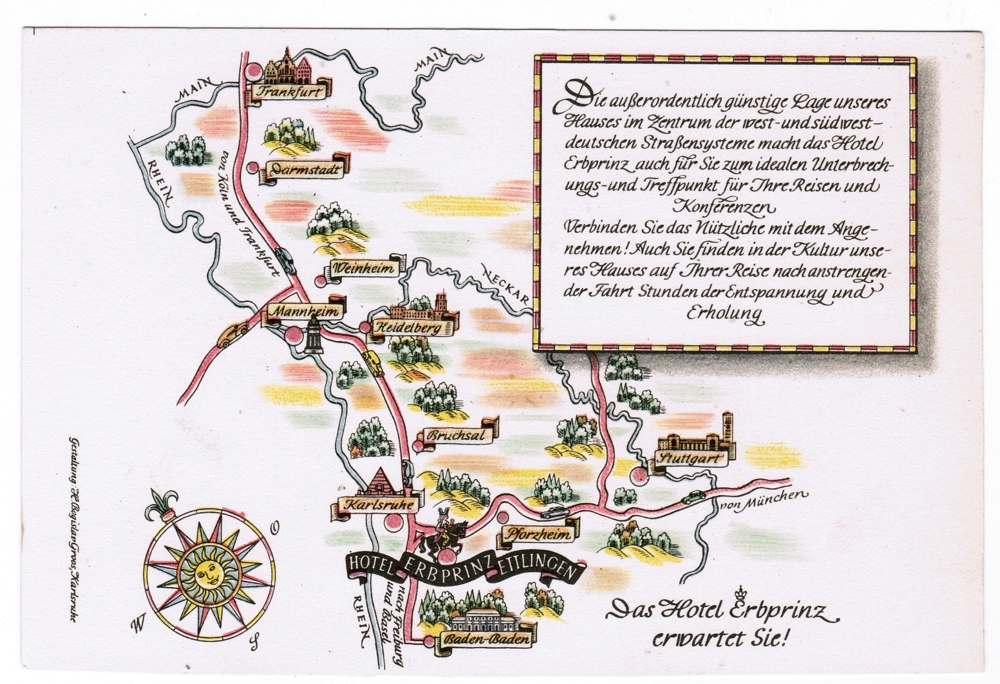 MAIN
MAIN
Frankfurt
RHEIN
Darmstadt
von Köln und Frankfurt
Weinheim
NECKAR
Mannheim
Heidelberg
Die außerordentlich günstige Lage unseres
Hauses im Zentrum der west- und südwest-
deutschen Straßensysteme macht das Hotel
Erbprinz auch für Sie zum idealen Unterbrech-
ungs- und Treffpunkt für Ihre Reisen und
Konferenzen
Verbinden Sie das Nützliche mit dem Ange-
nehmen! Auch Sie finden in der Kultur unse-
res Hauses auf Ihrer Reise nach anstrengen-
der Fahrt Stunden der Entspannung und
Erholung
Bruchsal
Stuttgart
Karlsruhe
von München
Pforzheim
HOTEL ERBPRINZ ETTLINGEN
RHEIN
nach Freiburg
und Basel
Baden-Baden
O
W
S
Das Hotel Erbprinz
erwartet Sie!
Gestaltung: Karlsruhe